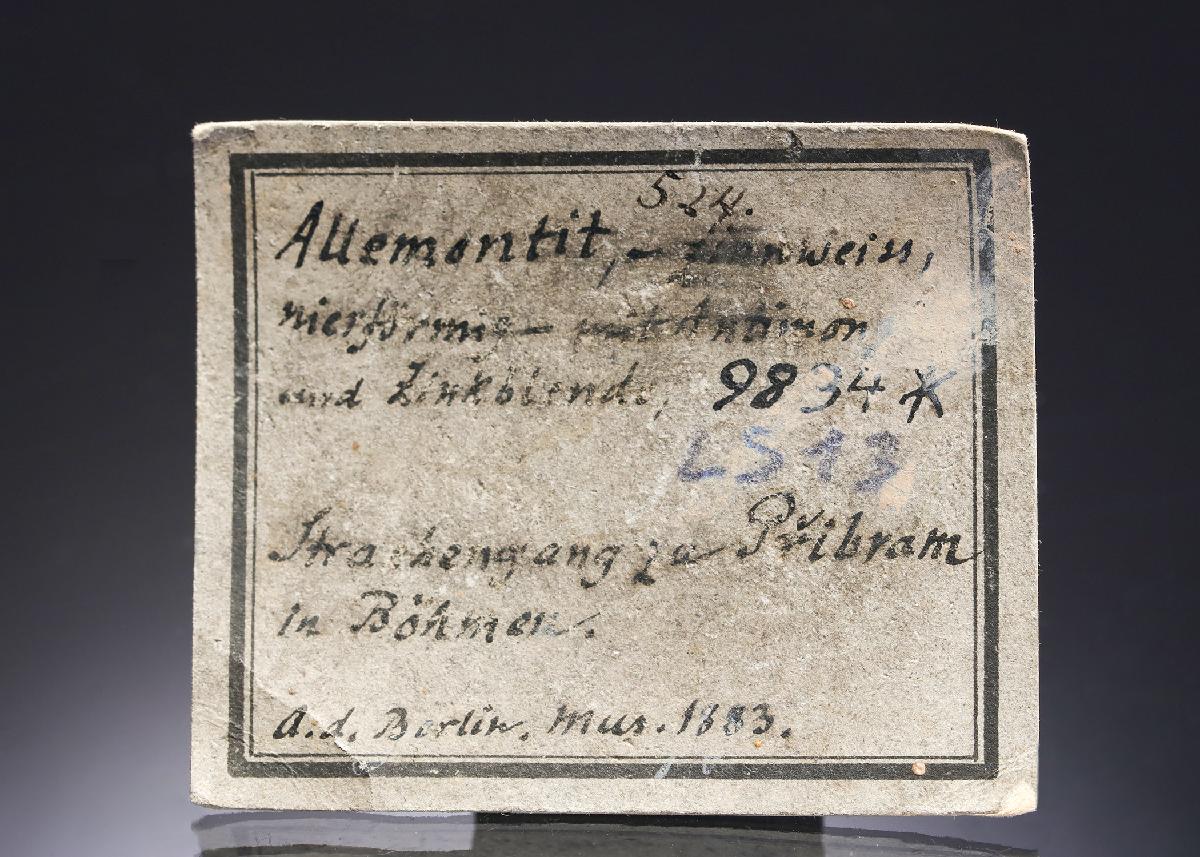 524.
Allemontit, – zinnweiss,
nierförmig – mit Antimon,
und Zinkblende, 9834 *
LS 13
gang zu Přibram
in Böhmen.
A. d. Berlin. Mus. 1883.